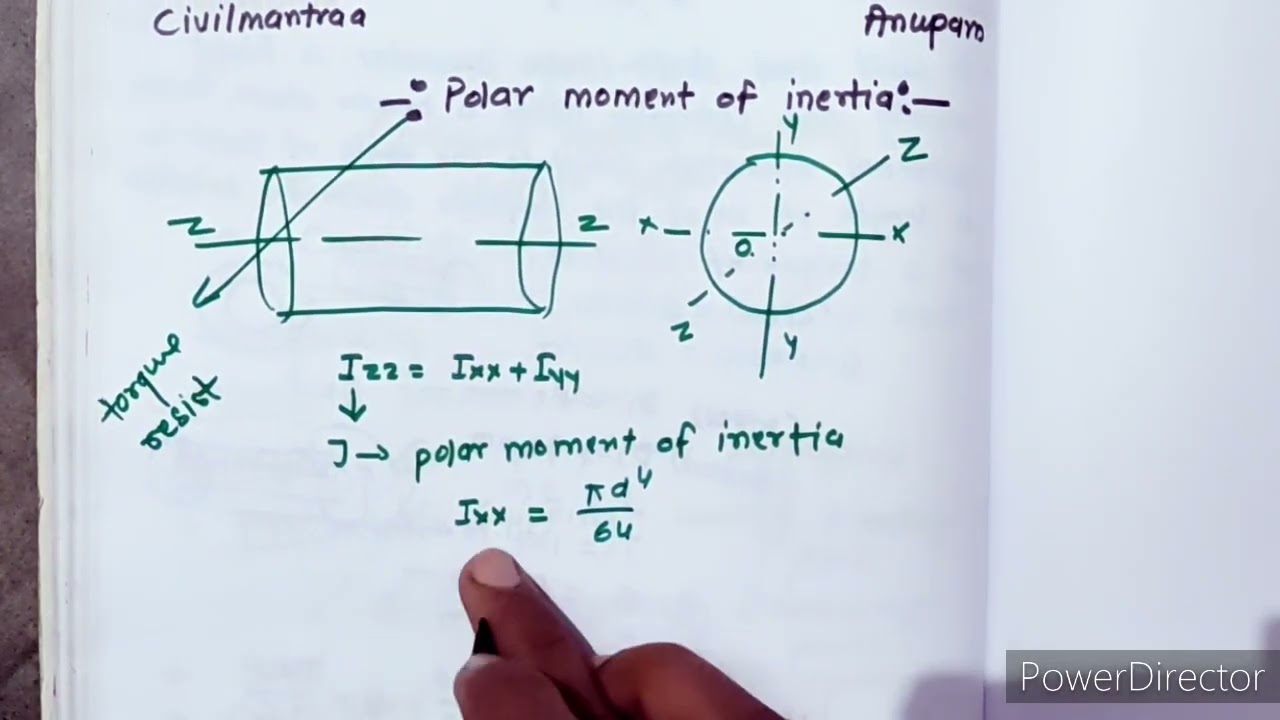 Civilmantraa
Anupam
Polar moment of inertia:
Y
Z
Z
Z
X
O.
X
Z
Y
torque
resist
Izz = Ixx + Iyy
↓
J → polar moment of inertia
Ixx = πd⁴/64
PowerDirector